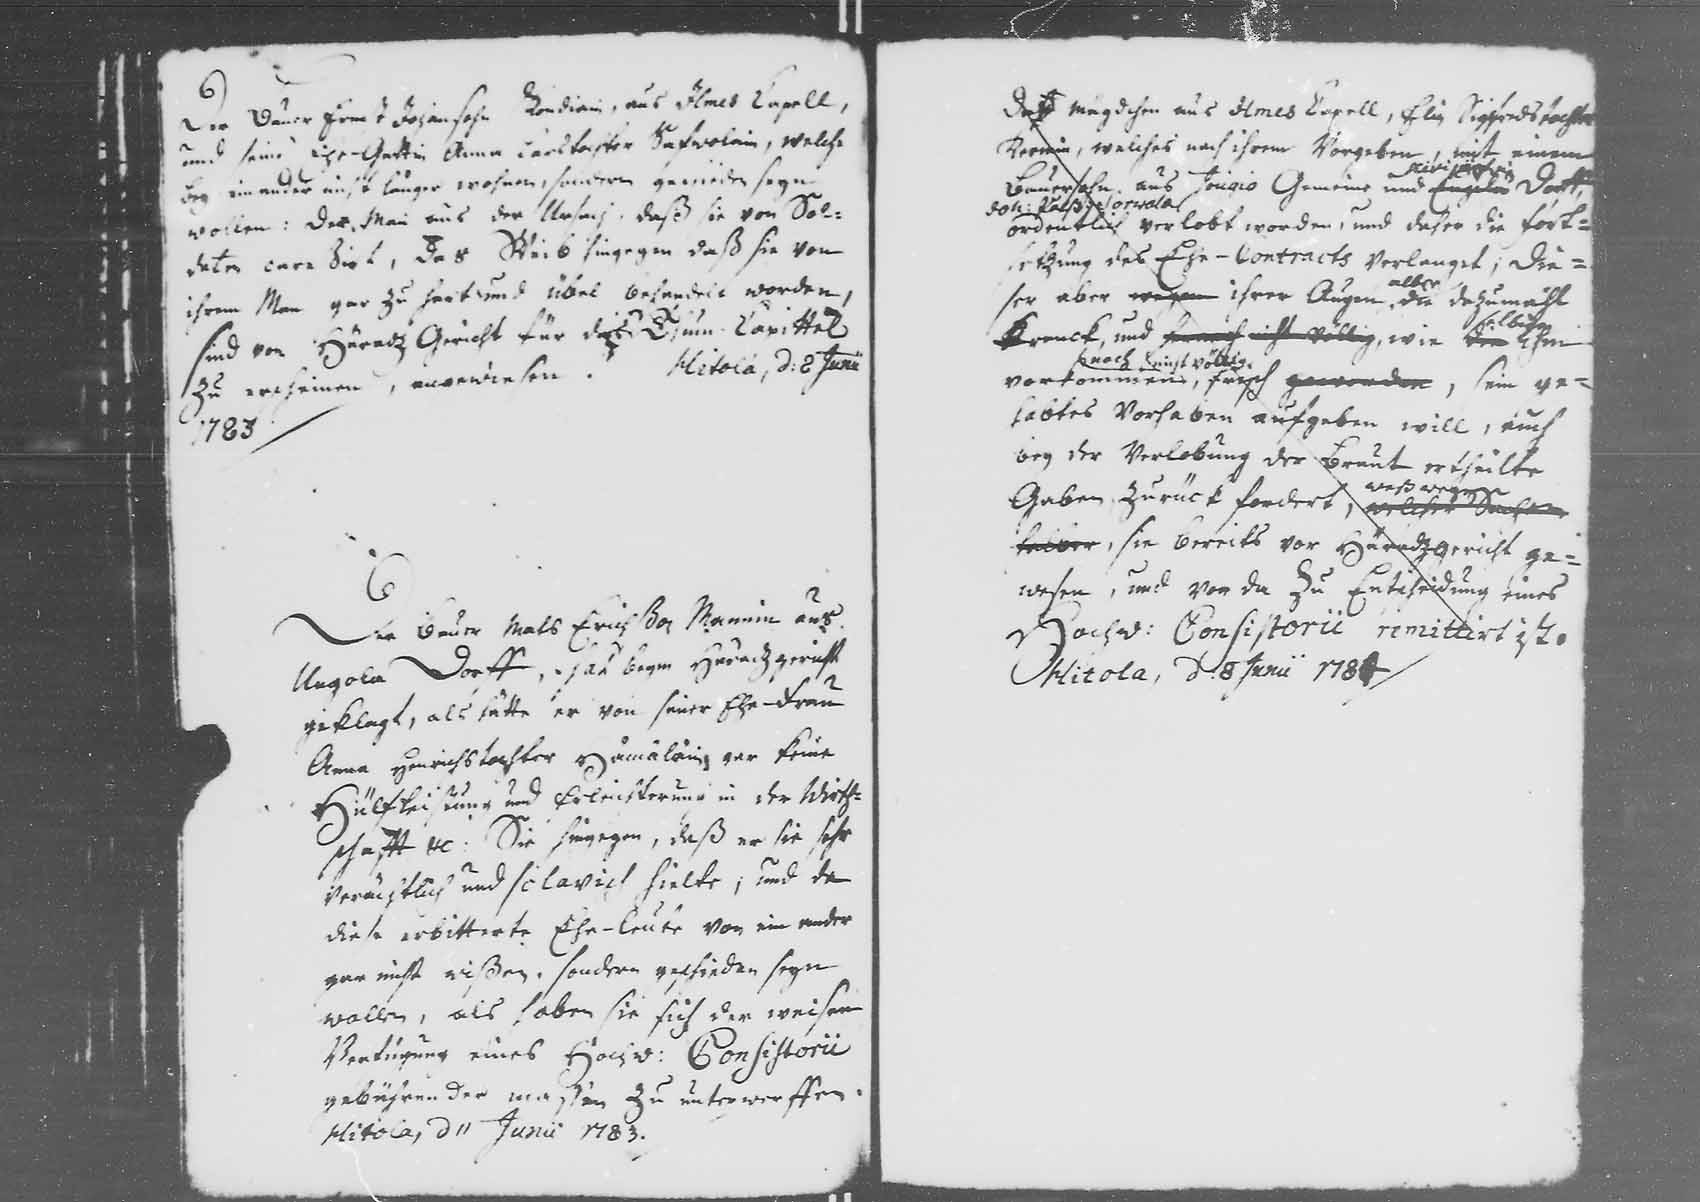 Der Bauer Johansohn aus Ilmes Capell,
und seine Ehe-Gattin Anna Larstochter welche
bey einander nicht länger wohnen, sondern geschieden seyn
wollen: Der Man aus der Ursach, daß sie von Sol=
daten Das Weib hingegen daß sie von
ihrem Man gar zu hart und übel behandelt worden,
sind von Häradz Gericht für das Thum-Capittel
zu erscheinen, angewiesen. Hitola, d: 8 Junii
1783
Der Bauer Mats Erichßon Mannin aus
Ungola Dorff, hat beym Häradzgericht
geklagt, als hätte er von seiner Ehe-Frau
Anna Henrichstochter Hämäläin gar keine
Hülfleistung und Erleichterung in der Wirth=
schafft &c: Sie hingegen, daß er sie sehr
verächtlich und sclavisch hielte; und da
diese erbitterte Ehe-Leute von ein ander
gar nicht wißen, sondern geschieden seyn
wollen, als haben sie sich der weisen
Verfügung eines Hochw: Consistorii
gebührender massen zu unterwerffen.
Hitola, d 11 Junii 1783.
Mägdchen aus Ilmes Capell, Elin Sigfredstochter
welches nach ihrem Vorgeben, mit einem
Bauersohn aus Gemeine und Dorff,
Joh:
ordentlich verlobt worden, und daher die Fort=
setzung des Ehe-Contracts verlanget; Die=
ser aber wegen ihrer Augen, die dazumahl
alber
Kranck, und nicht völlig, wie die ihm
selbige
noch nicht völlig
vorkommen, frisch geworden, sein ge=
habtes Vorhaben aufgeben will, auch
bey der Verlobung der Braut ertheilte
Gaben zurück fordert, welcher Sachen
weßwegen
halber, sie bereits vor Häradzgericht ge=
wesen, und von da zu Entscheidung eines
Hochw: Consistorii remittirt ist.
Hitola, d. 8 Junii